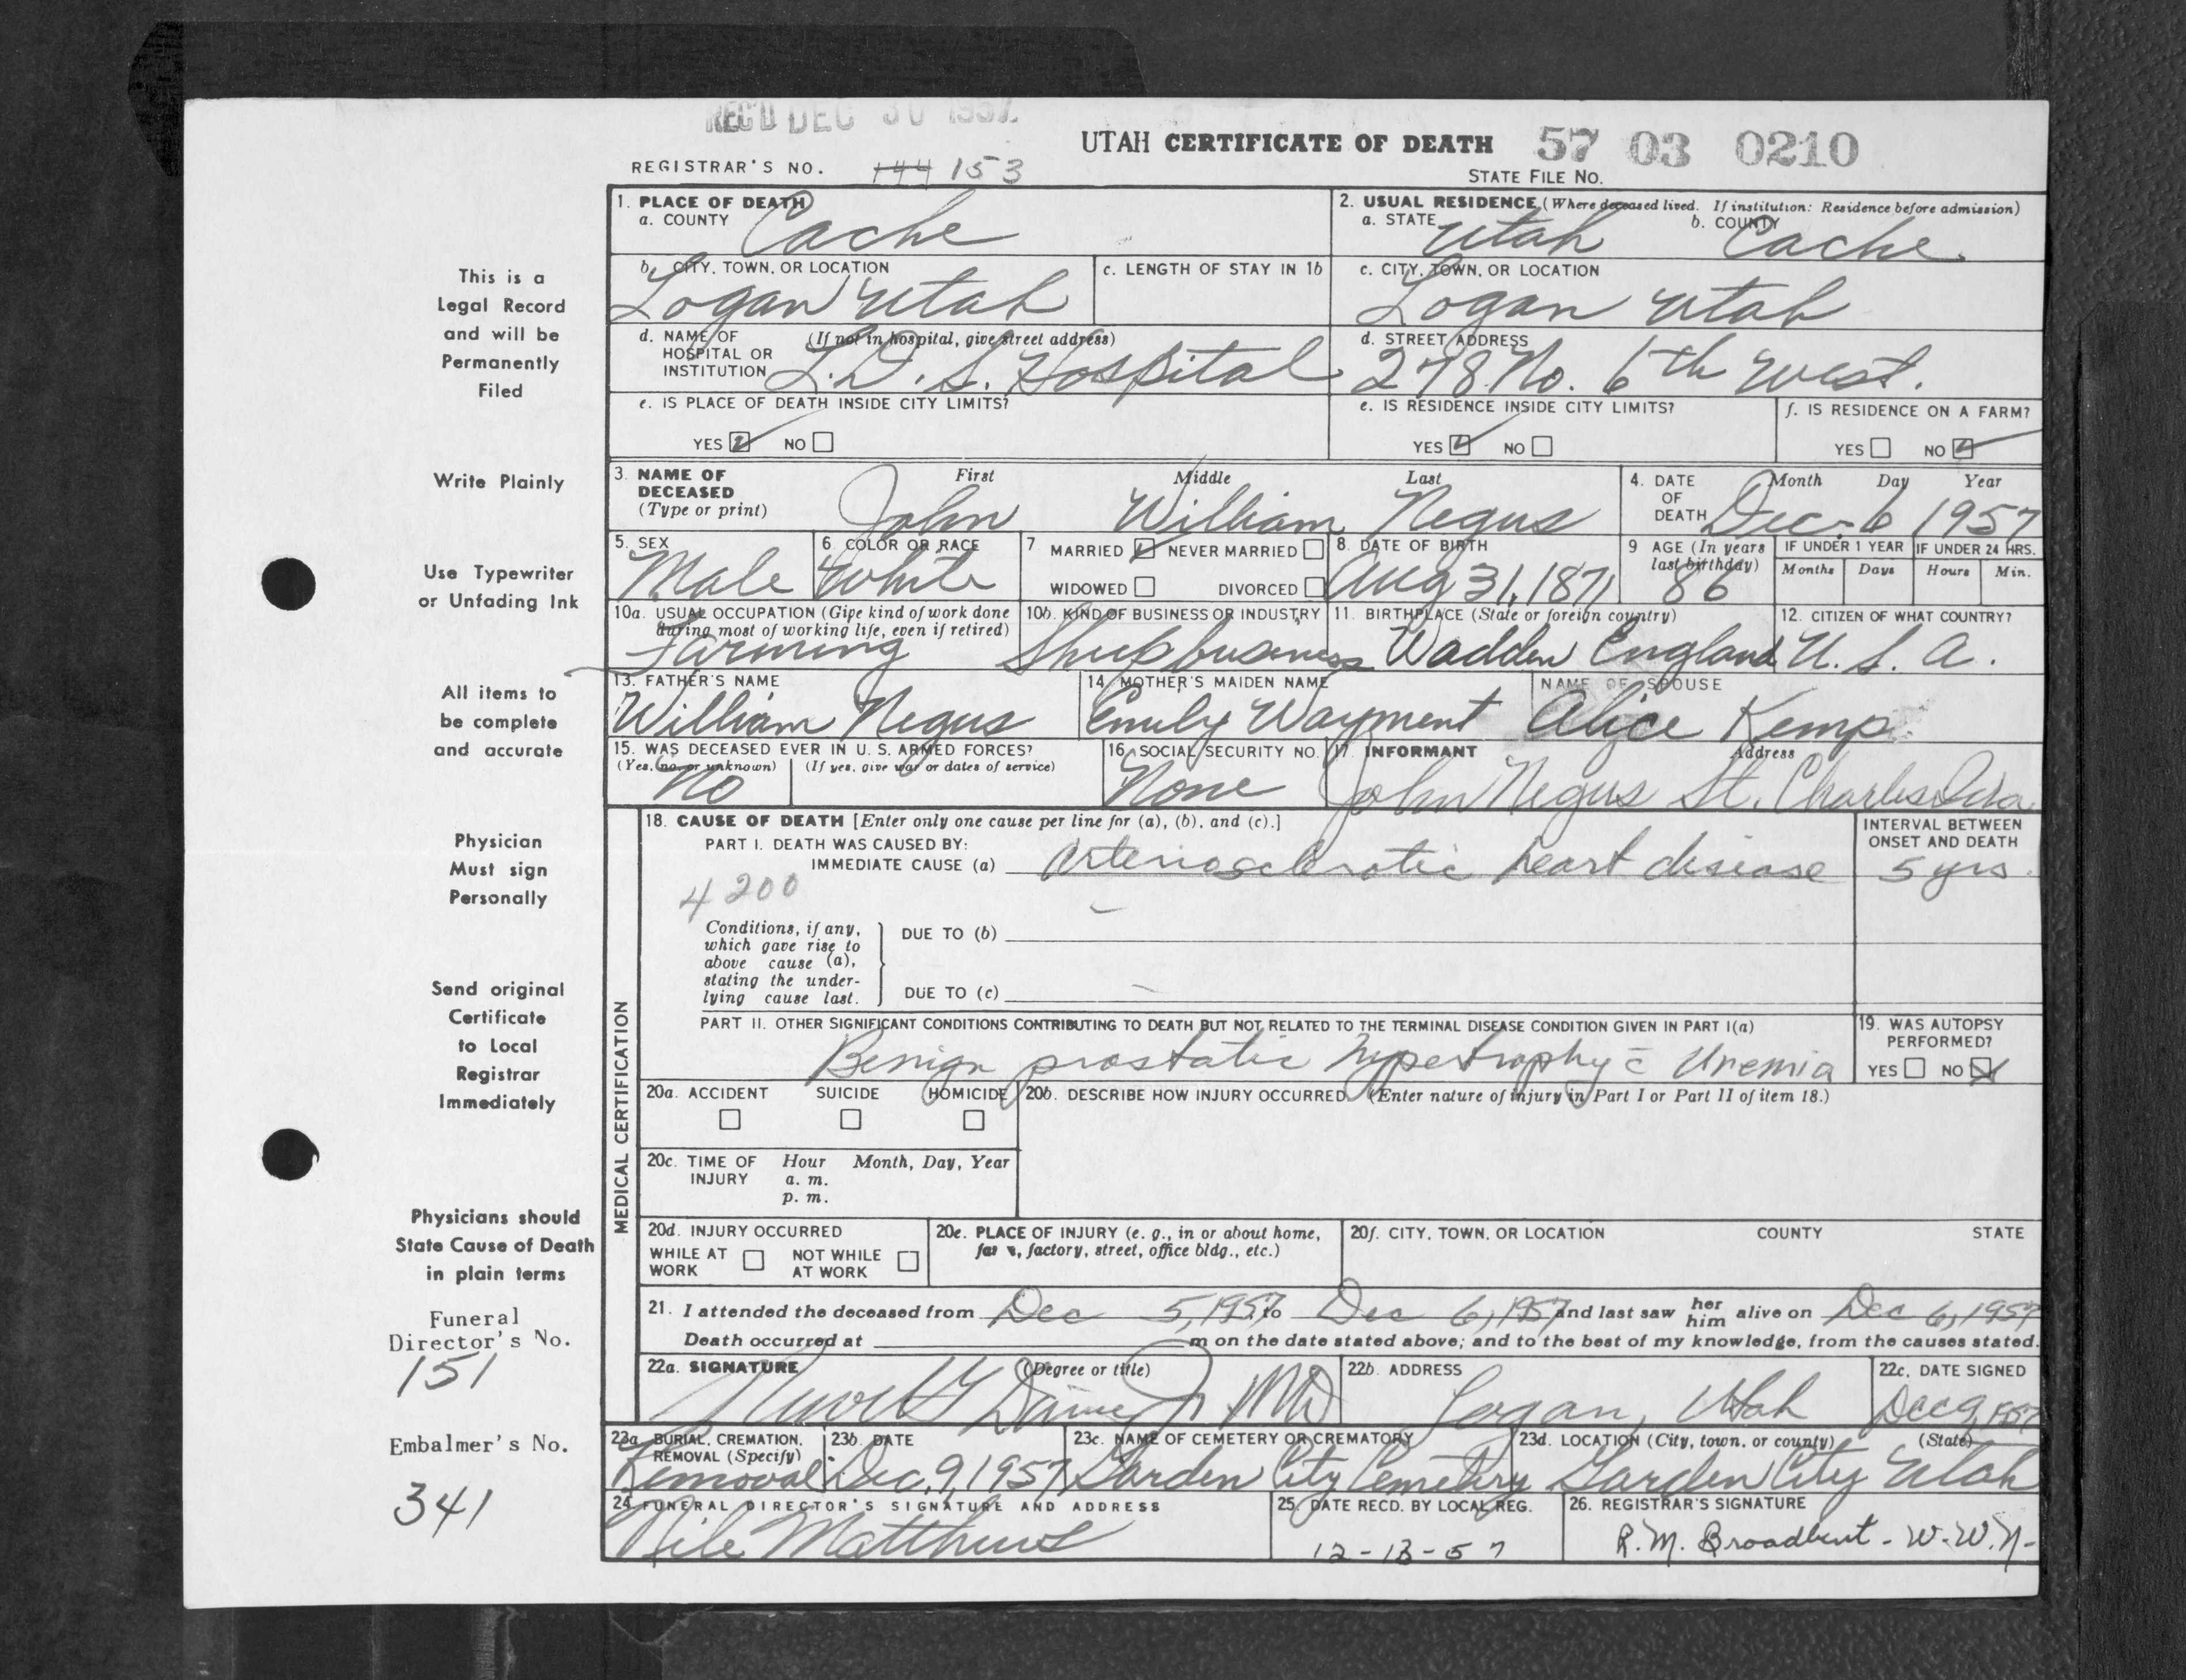 REC'D DEC 30 1957
UTAH CERTIFICATE OF DEATH 57 03 0210
REGISTRAR'S NO. 144 153
STATE FILE NO.
1. PLACE OF DEATH
a. COUNTY Cache
2. USUAL RESIDENCE (Where deceased lived. If institution: Residence before admission)
a. STATE Utah b. COUNTY Cache
b. CITY, TOWN, OR LOCATION Logan Utah
c. LENGTH OF STAY IN 1b
c. CITY, TOWN, OR LOCATION Logan Utah
d. NAME OF HOSPITAL OR INSTITUTION (If not in hospital, give street address) L.D.S. Hospital
d. STREET ADDRESS 278 No. 6th West.
e. IS PLACE OF DEATH INSIDE CITY LIMITS?
YES NO
e. IS RESIDENCE INSIDE CITY LIMITS?
YES NO
f. IS RESIDENCE ON A FARM?
YES NO
3. NAME OF DECEASED (Type or print) First Middle Last
John William Negus
4. DATE OF DEATH Month Day Year
Dec. 6 1957
5. SEX Male
6 COLOR OR RACE White
7 MARRIED NEVER MARRIED
WIDOWED DIVORCED
8. DATE OF BIRTH Aug 31, 1871
9 AGE (In years last birthday) 86
IF UNDER 1 YEAR Months Days
IF UNDER 24 HRS. Hours Min.
10a. USUAL OCCUPATION (Give kind of work done during most of working life, even if retired) Farming
10b. KIND OF BUSINESS OR INDUSTRY Sheep business
11. BIRTHPLACE (State or foreign country) Wadden England
12. CITIZEN OF WHAT COUNTRY? U. S. A.
13. FATHER'S NAME William Negus
14. MOTHER'S MAIDEN NAME Emily Wayment
NAME OF SPOUSE Alice Kemp
15. WAS DECEASED EVER IN U. S. ARMED FORCES?
(Yes, no, or unknown) (If yes, give war or dates of service)
No
16. SOCIAL SECURITY NO. None
17. INFORMANT Address
John Negus St. Charles Ida
18. CAUSE OF DEATH [Enter only one cause per line for (a), (b), and (c).]
INTERVAL BETWEEN ONSET AND DEATH
PART I. DEATH WAS CAUSED BY:
IMMEDIATE CAUSE (a) Arteriosclerotic heart disease 5 yrs.
4200
Conditions, if any, which gave rise to above cause (a), stating the underlying cause last.
DUE TO (b)
DUE TO (c)
PART II. OTHER SIGNIFICANT CONDITIONS CONTRIBUTING TO DEATH BUT NOT RELATED TO THE TERMINAL DISEASE CONDITION GIVEN IN PART I(a)
Benign prostatic hypertrophy c̄ Uremia
19. WAS AUTOPSY PERFORMED?
YES NO
20a. ACCIDENT SUICIDE HOMICIDE
20b. DESCRIBE HOW INJURY OCCURRED. (Enter nature of injury in Part I or Part II of item 18.)
20c. TIME OF INJURY Hour Month, Day, Year
a. m.
p. m.
20d. INJURY OCCURRED
WHILE AT WORK NOT WHILE AT WORK
20e. PLACE OF INJURY (e. g., in or about home, farm, factory, street, office bldg., etc.)
20f. CITY, TOWN, OR LOCATION COUNTY STATE
21. I attended the deceased from Dec 5, 1957, to Dec 6, 1957 and last saw her him alive on Dec 6, 1957
Death occurred at m on the date stated above; and to the best of my knowledge, from the causes stated.
22a. SIGNATURE (Degree or title) MD
22b. ADDRESS Logan, Utah
22c. DATE SIGNED Dec 9, 1957
23a BURIAL, CREMATION, REMOVAL (Specify) Removal
23b DATE Dec. 9, 1957
23c. NAME OF CEMETERY OR CREMATORY Garden City Cemetery
23d. LOCATION (City, town, or county) (State) Garden City Utah
24 FUNERAL DIRECTOR'S SIGNATURE AND ADDRESS Nile Matthews
25 DATE RECD. BY LOCAL REG. 12-13-57
26. REGISTRAR'S SIGNATURE R.M. Broadbent - W.W.N-
MEDICAL CERTIFICATION
This is a
Legal Record
and will be
Permanently
Filed
Write Plainly
Use Typewriter
or Unfading Ink
All items to
be complete
and accurate
Physician
Must sign
Personally
Send original
Certificate
to Local
Registrar
Immediately
Physicians should
State Cause of Death
in plain terms
Funeral
Director's No.
151
Embalmer's No.
341